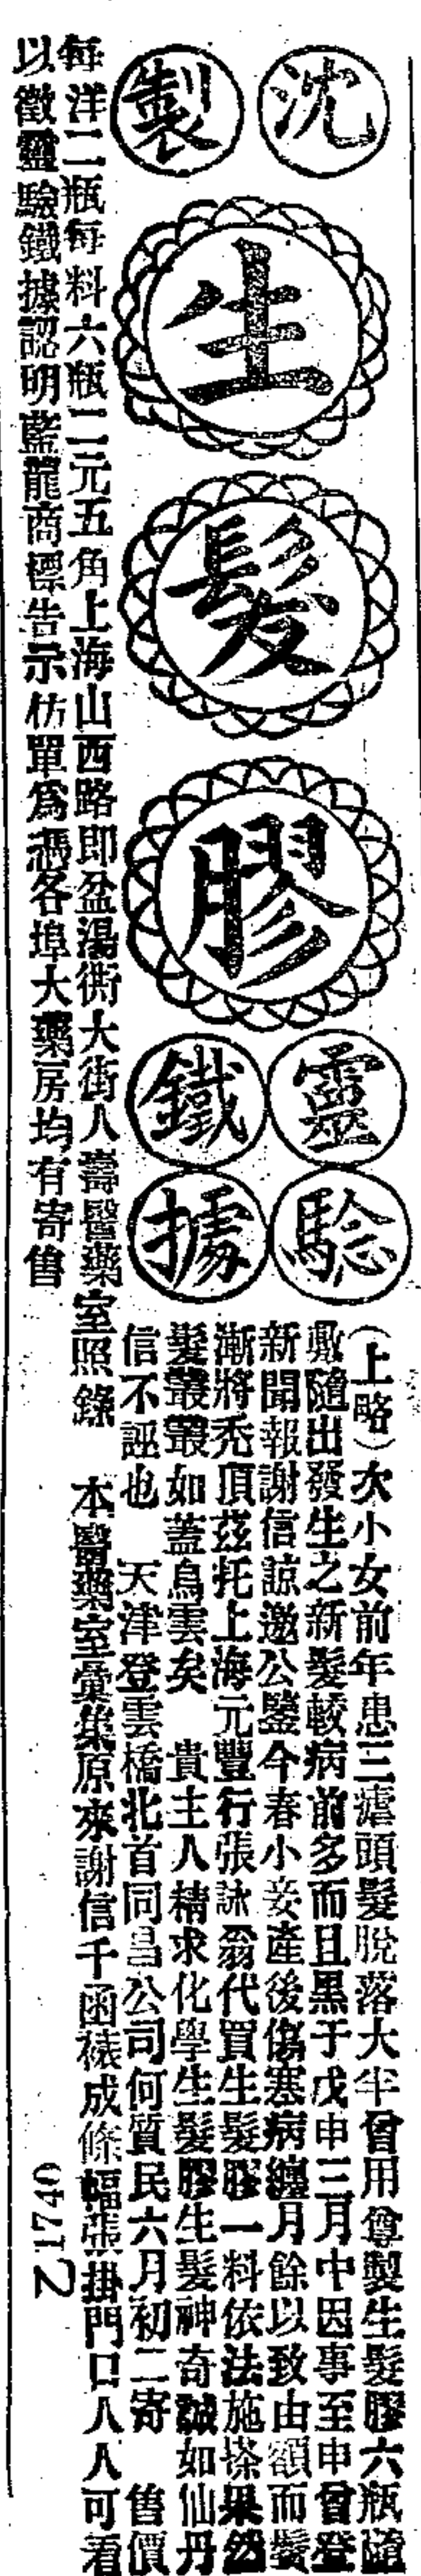 沈製
生髮膠
靈驗鐵據
（上略）次小女前年患三瘧頭髮脫落大半曾用尊製生髮膠六瓶隨
敷隨出發生之新髮較病前多而且黑于戊申三月中因事至申曾登
新聞報謝信諒邀公鑒今春小妾產後傷寒病纏月餘以致由額而鬢
漸將禿頂茲托上海元豐行張詠翁代買生髮膠一料依法施搽果然
髮叢叢如蓋烏雲矣　貴主人精求化學生髮膠生髮神奇誠如仙丹
信不誣也　天津登雲橋北首同昌公司何質民六月初二寄　售價
每洋二瓶每料六瓶二元五角上海山西路即盆湯衖大街人壽醫藥室照錄　本醫藥室彙集原來謝信千函裱成條幅張掛門口人人可看
以徵靈驗鐵據認明藍龍商標告示仿單為憑各埠大藥房均有寄售
04712